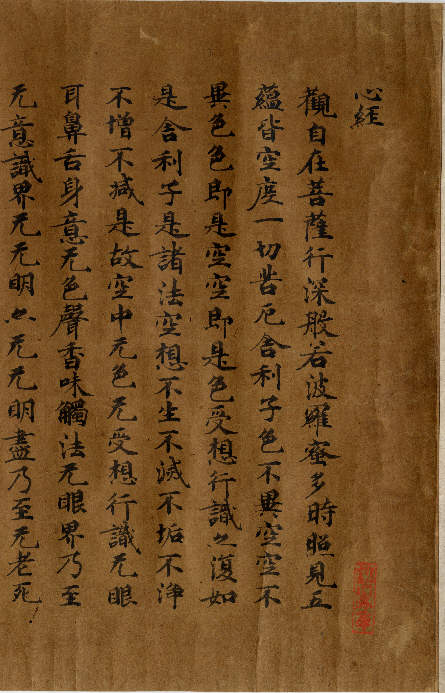 心経
觀自在菩薩行深般若波羅蜜多時照見五
蘊皆空度一切苦厄舍利子色不異空空不
異色色即是空空即是色受想行識亦復如
是舍利子是諸法空想不生不滅不垢不淨
不增不減是故空中无色无受想行識无眼
耳鼻舌身意无色聲香味觸法无眼界乃至
无意識界无无明亦无无明盡乃至无老死